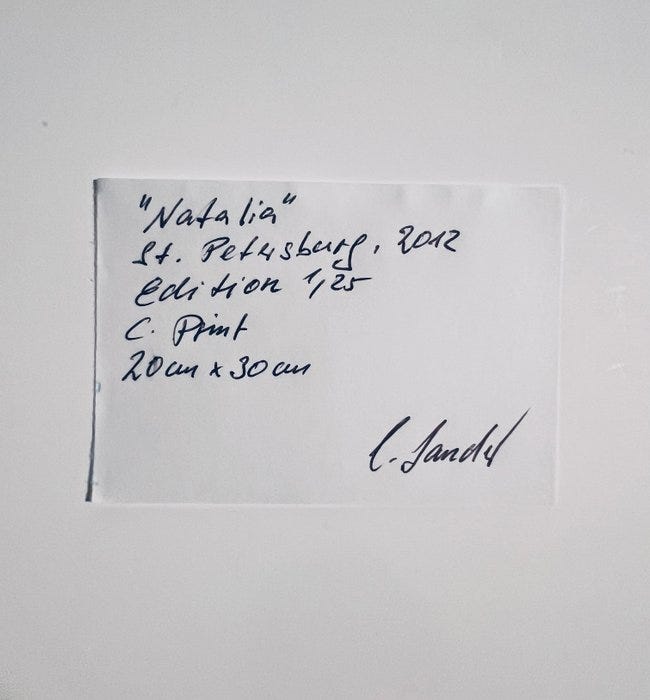 "Natalia"
St. Petersburg, 2012
Edition 1,25
C. Print
20cm x 30cm